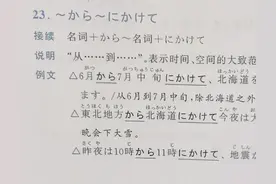 23. ～から～にかけて
接续 名词＋から～名词＋にかけて
说明 “从……到……”。表示时间、空间的大致范
例文 △6月から7月中旬にかけて、北海道を
ます。/从6月到7月中旬，除北海道之外
△東北地方から北海道にかけて今夜は大
晚会下大雪。
△昨夜は10時から11時にかけて、地震が